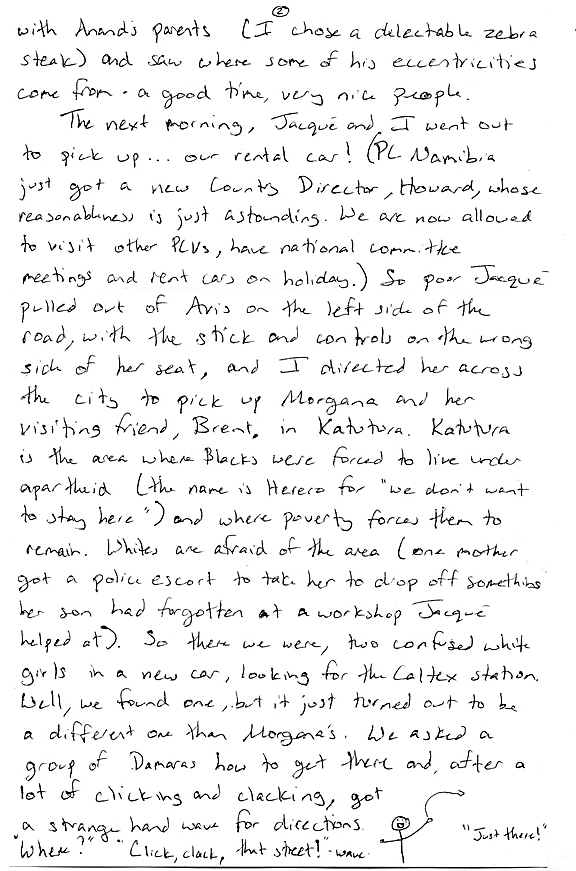 2
with Anand's parents (I chose a delectable zebra
steak) and saw where some of his eccentricities
come from - a good time, very nice people.
The next morning, Jacqué and I went out
to pick up... our rental car! (PC Namibia
just got a new Country Director, Howard, whose
reasonableness is just astounding. We are now allowed
to visit other PCVs, have national committee
meetings and rent cars on holiday.) So poor Jacqué
pulled out of Avis on the left side of the
road, with the stick and controls on the wrong
side of her seat, and I directed her across
the city to pick up Morgana and her
visiting friend, Brent, in Katutura. Katutura
is the area where Blacks were forced to live under
apartheid (the name is Herero for "we don't want
to stay here") and where poverty forces them to
remain. Whites are afraid of the area (one mother
got a police escort to take her to drop off something
her son had forgotten at a workshop Jacqué
helped at). So there we were, two confused white
girls in a new car, looking for the Caltex station.
Well, we found one, but it just turned out to be
a different one than Morgana's. We asked a
group of Damaras how to get there and, after a
lot of clicking and clacking, got
a strange hand wave for directions.
"Where?" "Click, clack, that street!" - wave. "Just there!"